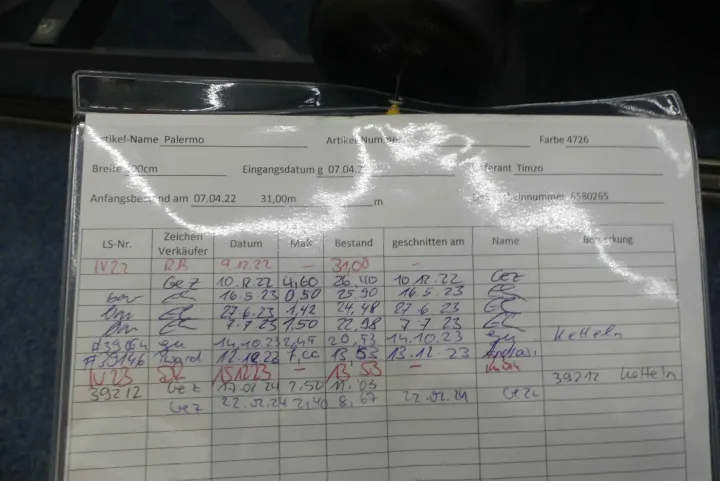 Artikel-Name Palermo Artikel-Nummer Farbe 4726
Breite 300cm Eingangsdatum g 07.04.2 Lieferant Timzo
Anfangsbestand am 07.04.22 31,00m m 6580265
LS-Nr. Zeichen Verkäufer Datum Maß Bestand geschnitten am Name Bemerkung
IV22 RB 9.12.22 – 31,00 –
Gez 10.12.22 4,60 26,40 10.12.22 Gez
bar 16.5.23 0,50 25,90 16.5.23
27.6.23 1,42 24,48 27.6.23
7.7.23 1,50 22,98 7.7.23
#39064 gu 14.10.23 2,45 20,53 14.10.23 gu Ketteln
#39146 12.12.23 7,00 13,53 13.12.23
IV23 15.12.23 – 13,53 –
39212 Gez 17.02.24 2,50 11,03 39212 Ketteln
Gez 22.02.24 2,40 8,67 22.02.24 Gez